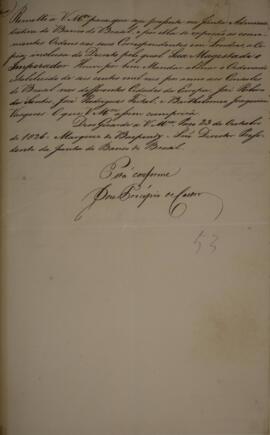 Remetto a V. M.ce para que seja presente na Junta Adminis-
trativa do Banco do Brasil, e por ella se expeção as conve-
nientes Ordens aos seus Correspondentes em Londres, a Co-
pia inclusa do Decreto pelo qual Sua Magestade o
Imperador Houve por bem Mandar abonar o Ordenado
Estabelecido de seis centos mil reis por anno aos Consules
do Brasil nas differentes Cidades da Europa José Ribeiro
dos Santos, José Rodrigues, e Bartholomeo
Vasques. O que V. M.ce assim cumprirá.
Deos Guarde a V. M.ce Paço 23 de Outubro
de 1826 = Marquez de Baependy = Snr Director Presi-
dente da Junta do Banco do Brasil.
Está conforme
José Procopio de Castro
53